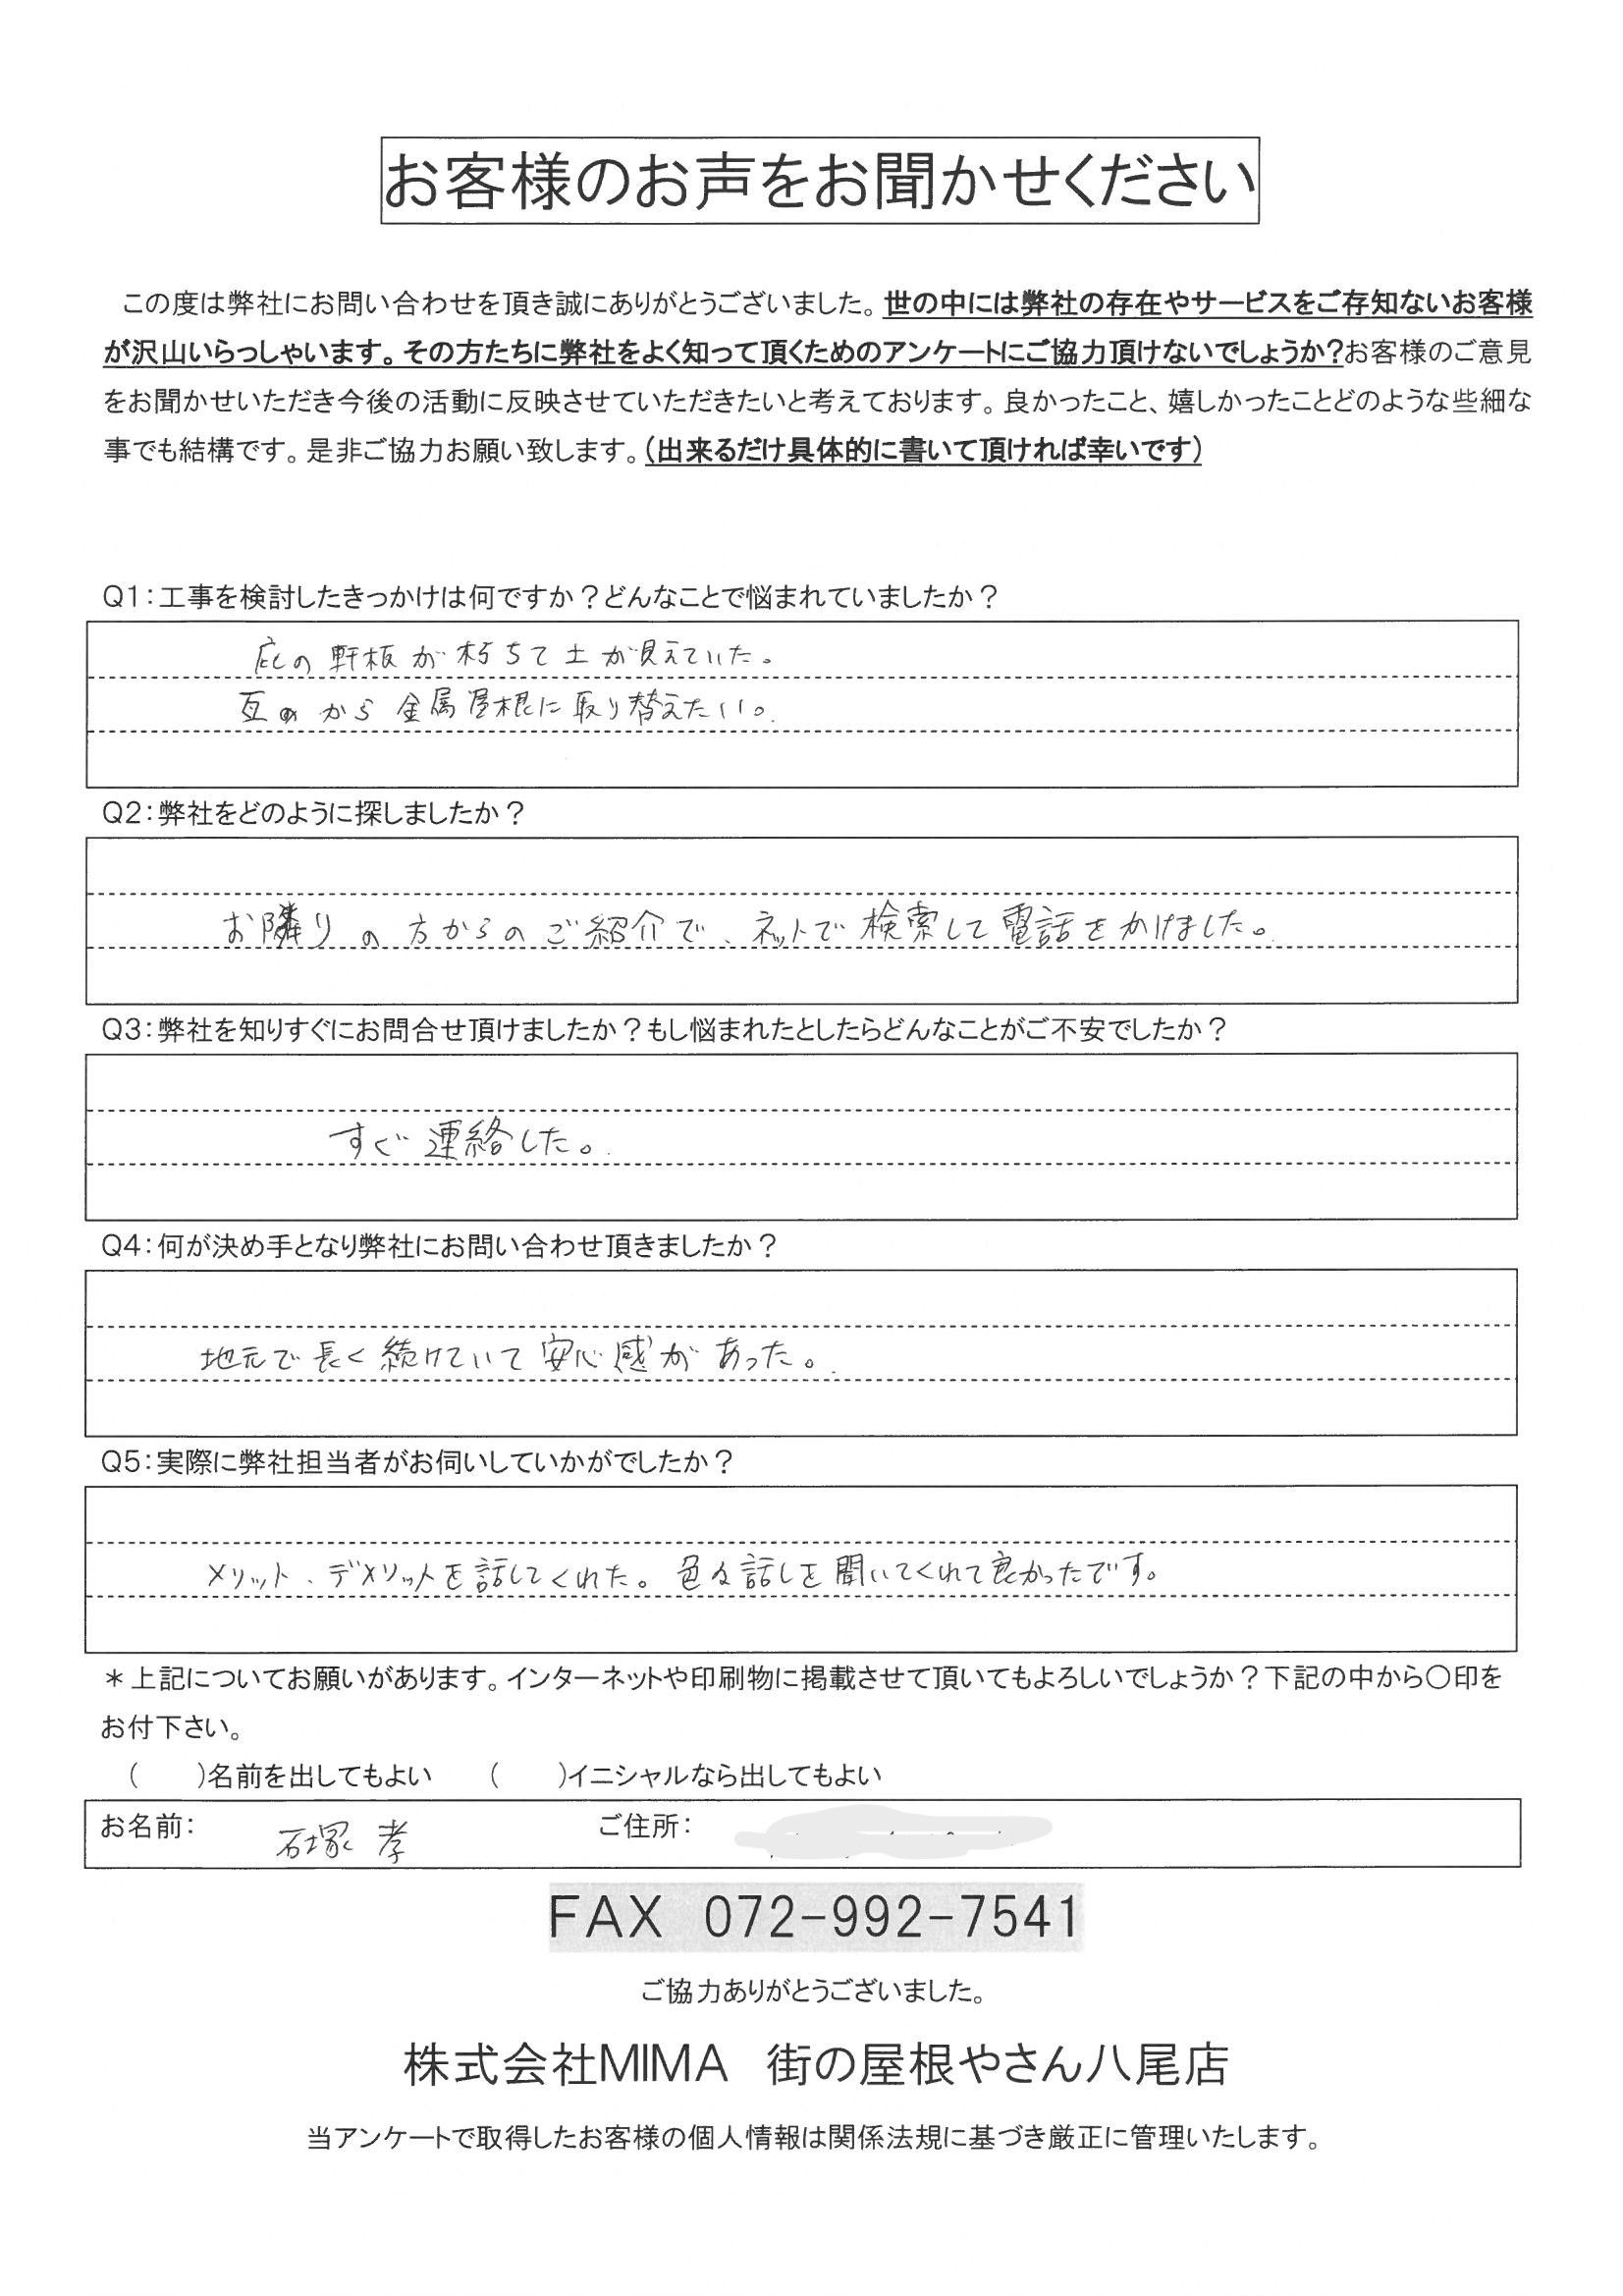 お客様のお声をお聞かせください
この度は弊社にお問い合わせを頂き誠にありがとうございました。世の中には弊社の存在やサービスをご存知ないお客様
が沢山いらっしゃいます。その方たちに弊社をよく知って頂くためのアンケートにご協力頂けないでしょうか?お客様のご意見
をお聞かせいただき今後の活動に反映させていただきたいと考えております。良かったこと、嬉しかったことどのような些細な
事でも結構です。是非ご協力お願い致します。(出来るだけ具体的に書いて頂ければ幸いです)
Q1:工事を検討したきっかけは何ですか?どんなことで悩まれていましたか?
庇の軒板が朽ちて土が見えていた。
から金属屋根に取り替えたい。
Q2:弊社をどのように探しましたか?
お隣りの方からのご紹介で、ネットで検索して電話をかけました。
Q3:弊社を知りすぐにお問合せ頂けましたか?もし悩まれたとしたらどんなことがご不安でしたか?
すぐ連絡した。
Q4:何が決め手となり弊社にお問い合わせ頂きましたか?
地元で長く続けていて安心感があった。
Q5:実際に弊社担当者がお伺いしていかがでしたか?
メリット、デメリットを話してくれた。色々話しを聞いてくれて良かったです。
*上記についてお願いがあります。インターネットや印刷物に掲載させて頂いてもよろしいでしょうか?下記の中から〇印を
お付下さい。
( )名前を出してもよい ( )イニシャルなら出してもよい
お名前: 石塚 孝 ご住所:
FAX 072-992-7541
ご協力ありがとうございました。
株式会社MIMA 街の屋根やさん八尾店
当アンケートで取得したお客様の個人情報は関係法規に基づき厳正に管理いたします。